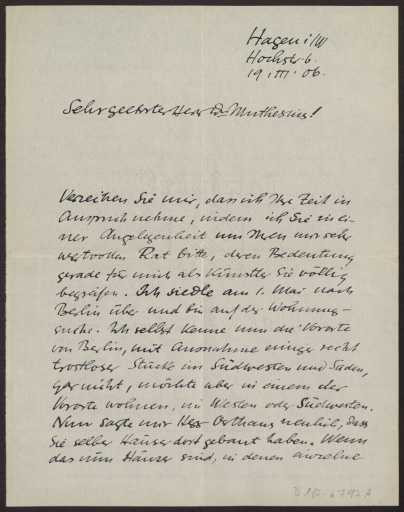 Hagen i/W
Hochstr 6.
19. III. 06.
Sehr geehrter Herr Dr Muthesius!
Verzeihen Sie mir, dass ich Ihre Zeit in
Anspruch nehme, indem ich Sie in ei-
ner Angelegenheit um Ihren mir sehr
wertvollen Rat bitte, deren Bedeutung
gerade für mich als Künstler Sie völlig
begreifen. Ich siedle am 1. Mai nach
Berlin über und bin auf der Wohnung-
suche. Ich selbst kenne nun die Vororte
von Berlin, mit Ausnahme einiger recht
trostloser Stücke im Südwesten und Süden,
gar nicht, möchte aber in einem der
Vororte wohnen, im Westen oder Südwesten.
Nun sagte mir Herr Osthaus neulich, dass
Sie selber Häuser dort gebaut haben. Wenn
das nun Häuser sind, in denen einzelne